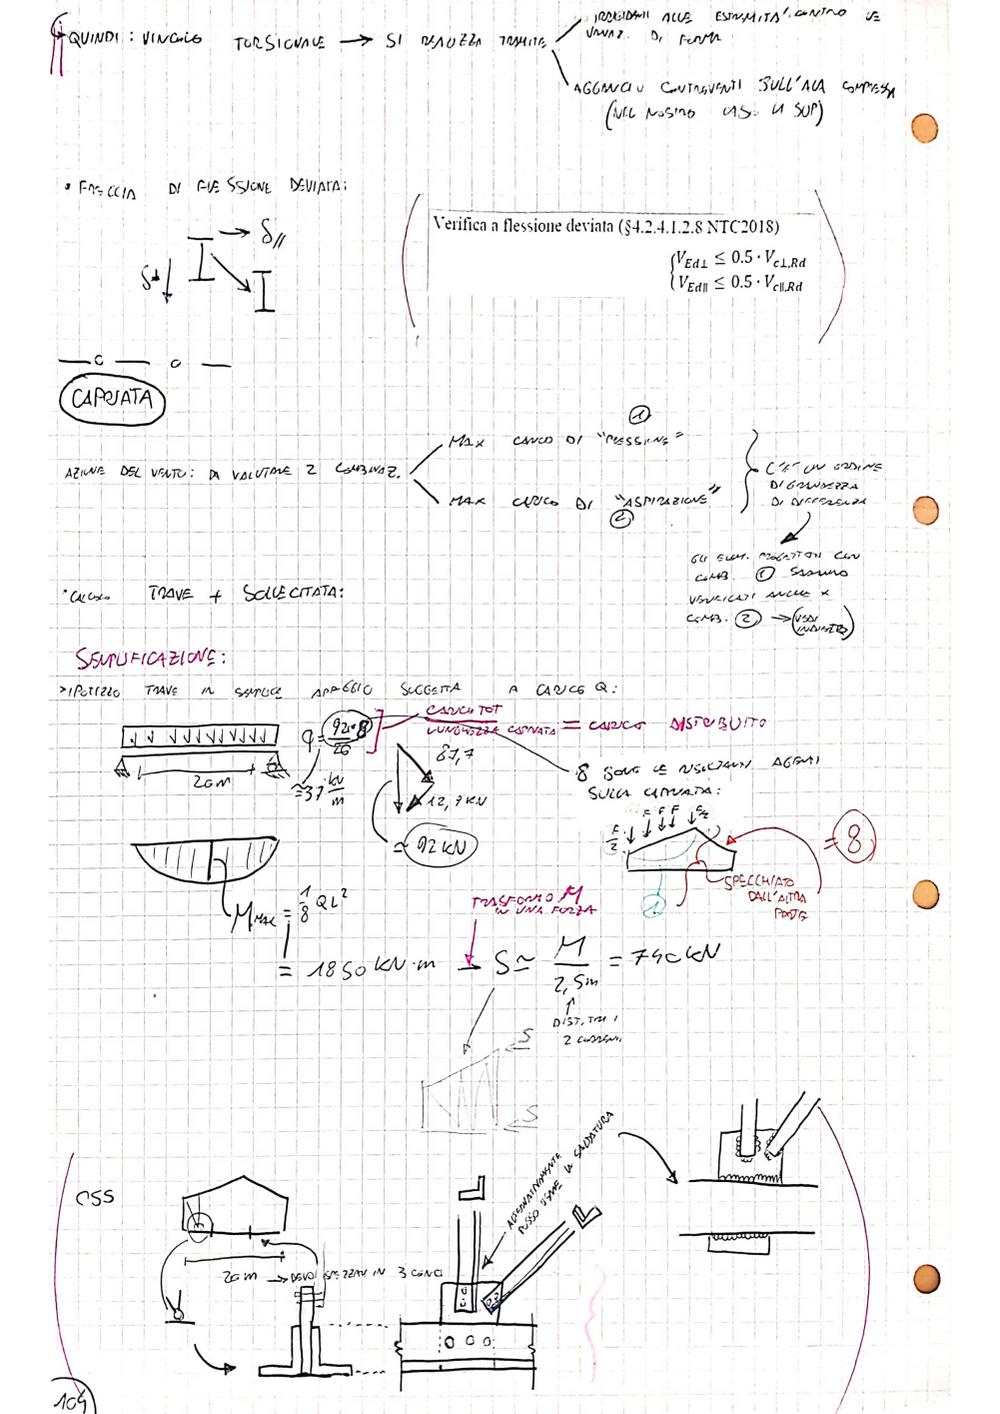 QUINDI: VINCOLO TORSIONALE → SI REALIZZA TRAMITE
IRRIGIDIM. ALLE ESTREMITA' CONTRO LE
VARIAZ. DI FORMA
AGGANCI O CONTROVENTI SULL'ALA COMPRESSA
(NEL NOSTRO CASO LA SUP)
• FRECCIA DI FLESSIONE DEVIATA:
δ//
δ⊥
Verifica a flessione deviata (§4.2.4.1.2.8 NTC2018)
V Ed⊥ ≤ 0.5 · V c⊥,Rd
V Ed∥ ≤ 0.5 · V c∥,Rd
CAPRIATA
AZIONE DEL VENTO: DA VALUTARE 2 COMBINAZ.
①
MAX CARICO DI "PRESSIONE"
MAX CARICO DI "ASPIRAZIONE"
②
C'E' UN ORDINE
DI GRANDEZZA
DI DIFFERENZA
GLI ELEM. PROGETTATI CON
COMB. ① SARANNO
VERIFICATI ANCHE X
COMB. ② → (VEDI
INDIETRO)
• CALCOLO TRAVE + SOLLECITATA:
SEMPLIFICAZIONE:
> IPOTIZZO TRAVE IN SEMPLICE APPOGGIO SOGGETTA A CARICO Q:
20m
q = 92·8/20
≅ 37 kN/m
CARICO TOT
LUNGHEZZA CAPRIATA = CARICO DISTRIBUITO
87,7
12,7 KN
≅ 92 KN
8 SONO LE RISULTANTI AGENTI
SULLA CAPRIATA:
F/2 F F F F/2
= 8
SPECCHIATO
DALL'ALTRA
PARTE
1
M MAX = 1/8 QL²
= 1850 KN·m
TRASFORMO M
IN UNA FORZA
→ S ≃ M/2,5m = 740 KN
DIST. TRA I
2 CORRENTI
S
S
OSS
20m → DEVO SPEZZARE IN 3 CONCI
ALTERNATIVAMENTE
POSSO USARE LA SALDATURA
104